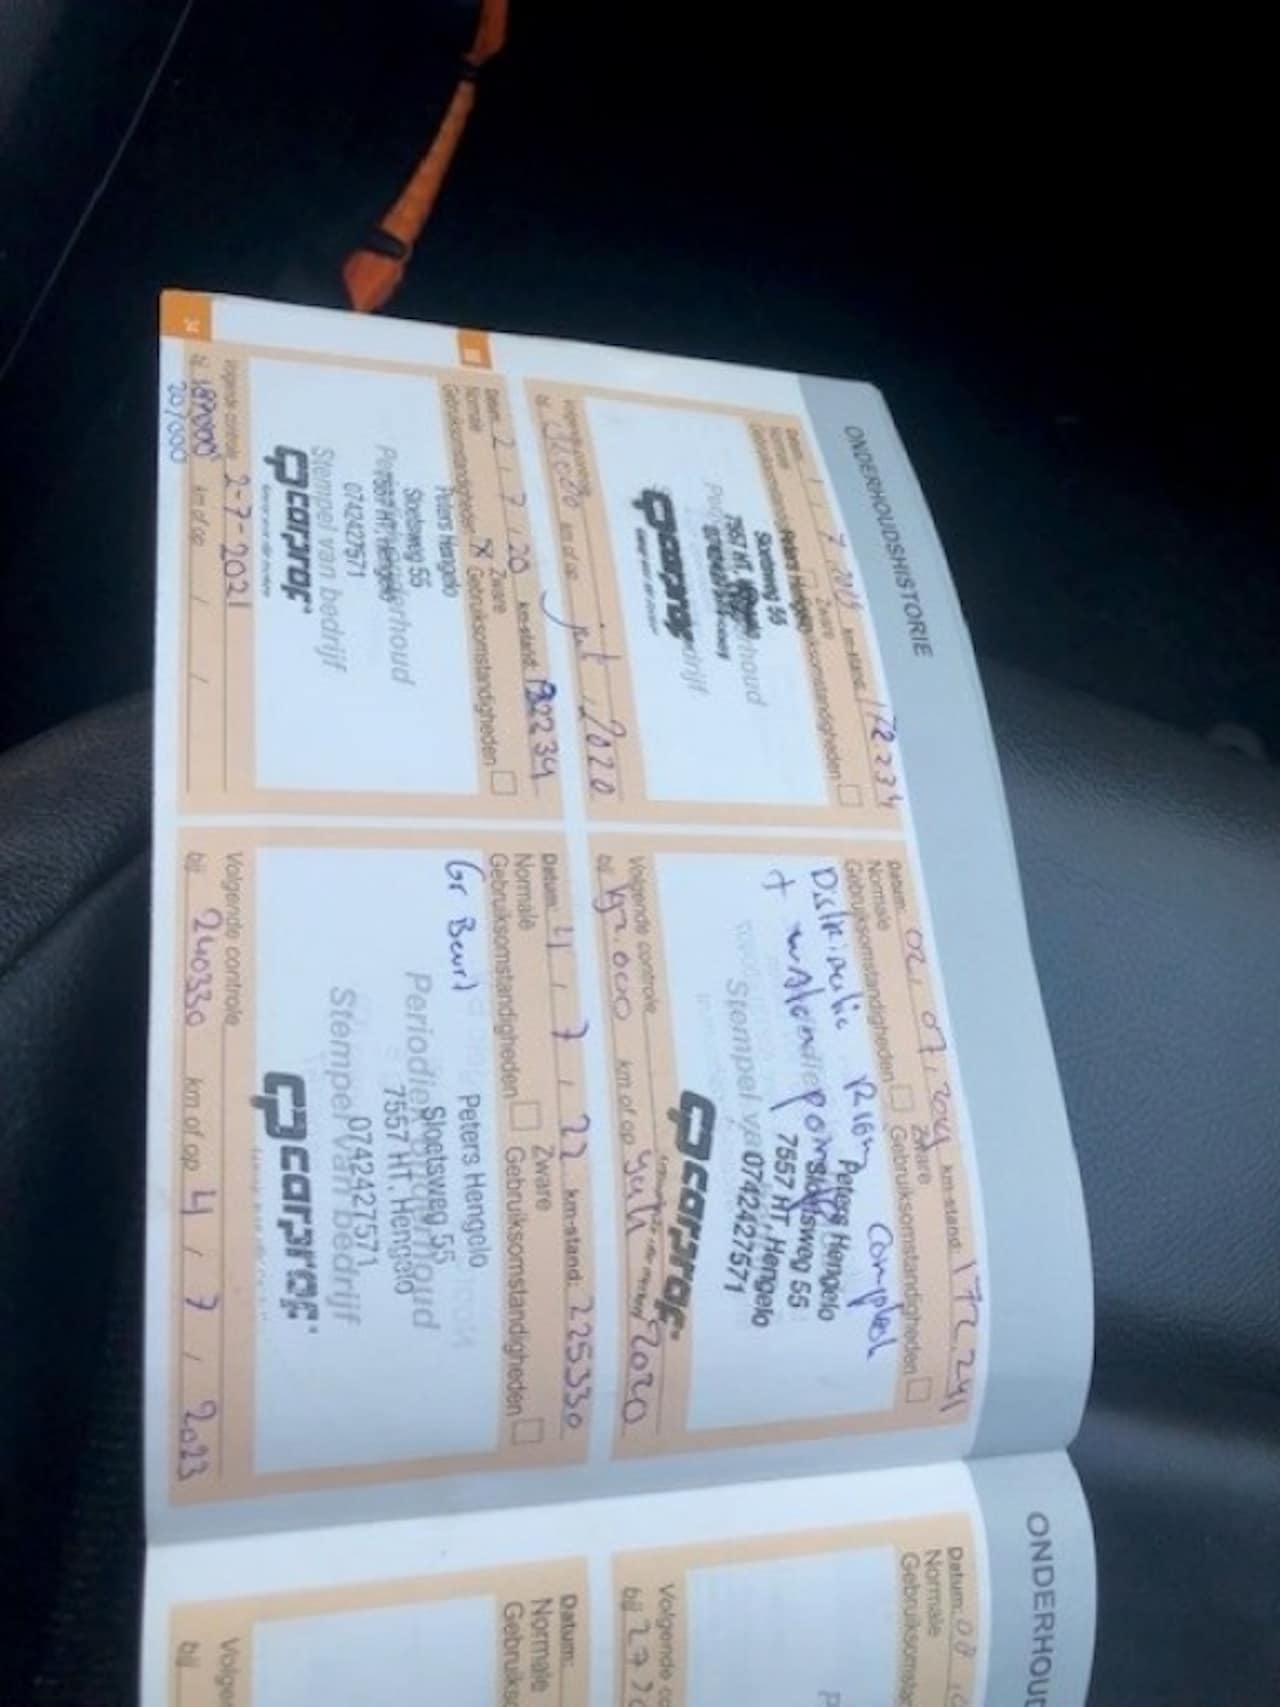 ONDERHOUDSHISTORIE
Datum: 1 / 7 2019 km-stand: 172.234
Normale Zware
Gebruiksomstandigheden Gebruiksomstandigheden
Peters Hengelo
Sloetsweg 55
7557 HT,
carprof
Volgende controle
km of op juli 2020
Datum: 02, 07, 2019 km-stand: 172.241
Normale Zware
Gebruiksomstandigheden Gebruiksomstandigheden
Distributie Riem Compleet
+ waterpomp
Peters Hengelo
Sloetsweg 55
7557 HT, Hengelo
0742427571
Stempel van
carprof
Volgende controle
bij 192.000 km of op juli 2020
Datum: 2 , 7 , 20 km-stand: 192234
Normale Zware
Gebruiksomstandigheden X Gebruiksomstandigheden
Peters Hengelo
Sloetsweg 55
7557 HT, Hengelo
0742427571
Stempel van bedrijf
carprof
Volgende controle 2-7-2021
bij 187000 km of op / /
207000
34
Datum: 4 , 7 , 22 km-stand: 225330
Normale Zware
Gebruiksomstandigheden Gebruiksomstandigheden
Gr Beurt
Peters Hengelo
Periodiek onderhoud
Sloetsweg 55
7557 HT, Hengelo
0742427571
Stempel van bedrijf
carprof
Volgende controle
bij 240330 km of op 4 / 7 / 2023
ONDERHOUD
Datum: 08
Normale
Gebruiksomsta
Volgende co
bij 27
Datum:
Normale
Gebruiks
Volge
bij